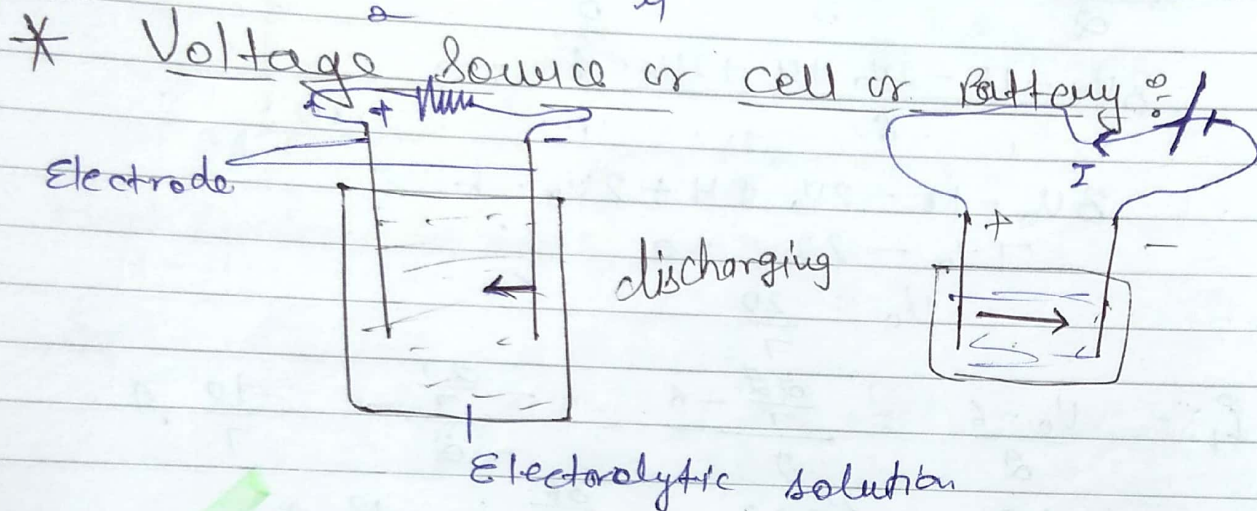 * Voltage Source or cell or Battery :-
+ + -
Electrode
I
+ -
discharging
Electorolytic solution